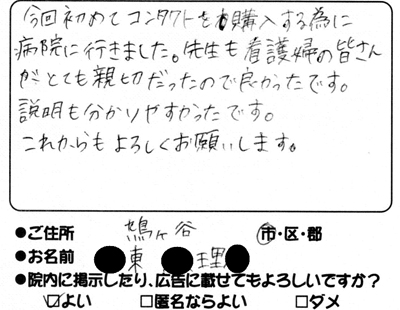 今回初めてコンタクトを購入する為に
病院に行きました。先生も看護婦の皆さん
がとても親切だったので良かったです。
説明も分かりやすかったです。
これからもよろしくお願いします。
●ご住所 鳩ヶ谷 市・区・郡
●お名前 東 理
●院内に掲示したり、広告に載せてもよろしいですか？
☑よい □匿名ならよい □ダメ